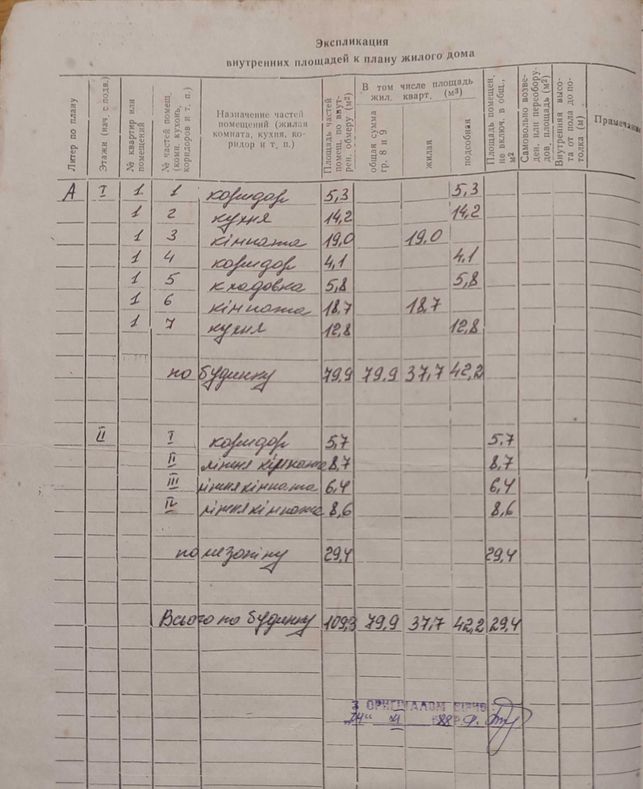 Экспликация
внутренних площадей к плану жилого дома
Литер по плану
Этажи (нач. с подв.)
№ квартир или помещений
№ частей помещ. (комн. кухонь, коридоров и т. п.)
Назначение частей помещений (жилая комната, кухня, коридор и т. п.)
Площадь частей помещ. по внутрен. обмеру (м²)
В том числе площадь жил. кварт. (м²)
общая сумма гр. 8 и 9
жилая
подсобная
Площадь помещен. не включ. в общ., м²
Самовольно возведен. или переоборудов. площадь (м²)
Внутренняя высота от пола до потолка (м)
Примечание
А I 1 1 коридор 5,3 5,3
1 2 кухня 14,2 14,2
1 3 кімната 19,0 19,0
1 4 коридор 4,1 4,1
1 5 кладовка 5,8 5,8
1 6 кімната 18,7 18,7
1 7 кухня 12,8 12,8
по будинку 79,9 79,9 37,7 42,2
II I коридор 5,7 5,7
II літня кімната 8,7 8,7
III літня кімната 6,4 6,4
IV літня кімната 8,6 8,6
по мезоніну 29,4 29,4
Всього по будинку 109,3 79,9 37,7 42,2 29,4
З ОРИГІНАЛОМ ВІРНО